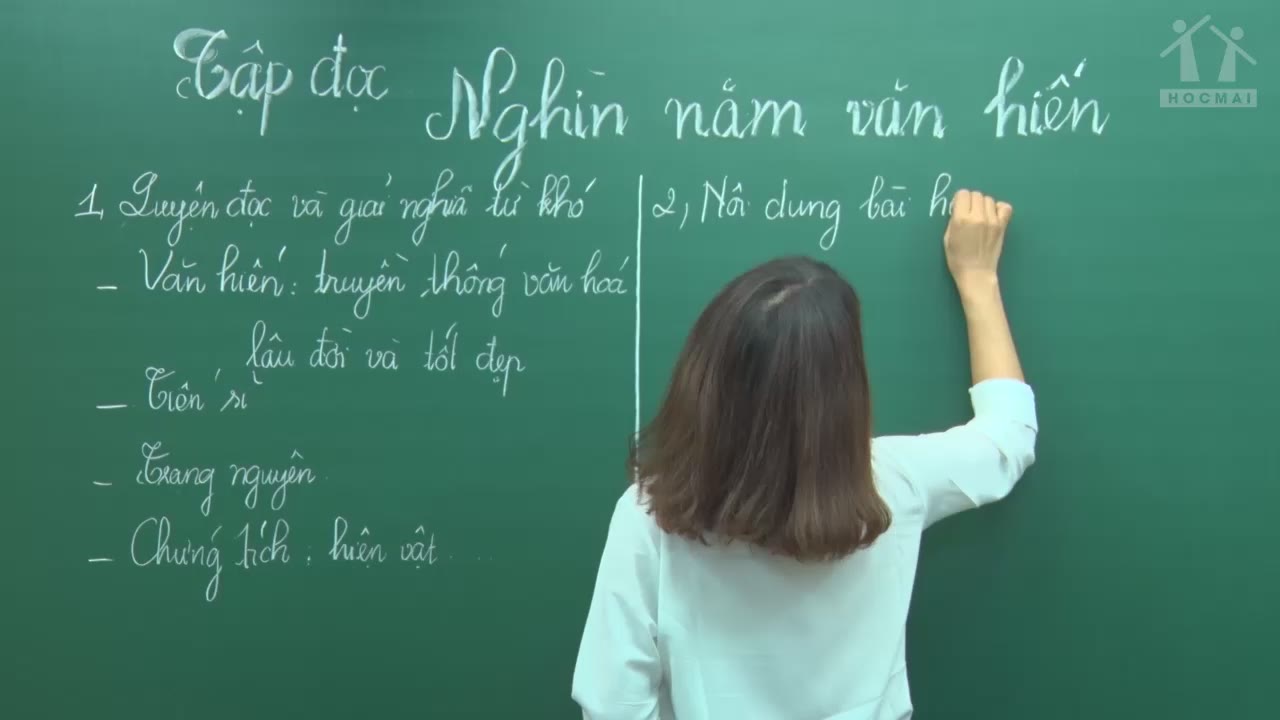 Tập đọc
Nghìn năm văn hiến
HOCMAI
1, Luyện đọc và giải nghĩa từ khó
- Văn hiến: truyền thống văn hoá
lâu đời và tốt đẹp
- Tiến sĩ
- Trạng nguyên
- Chứng tích: hiện vật ....
2, Nội dung bài h